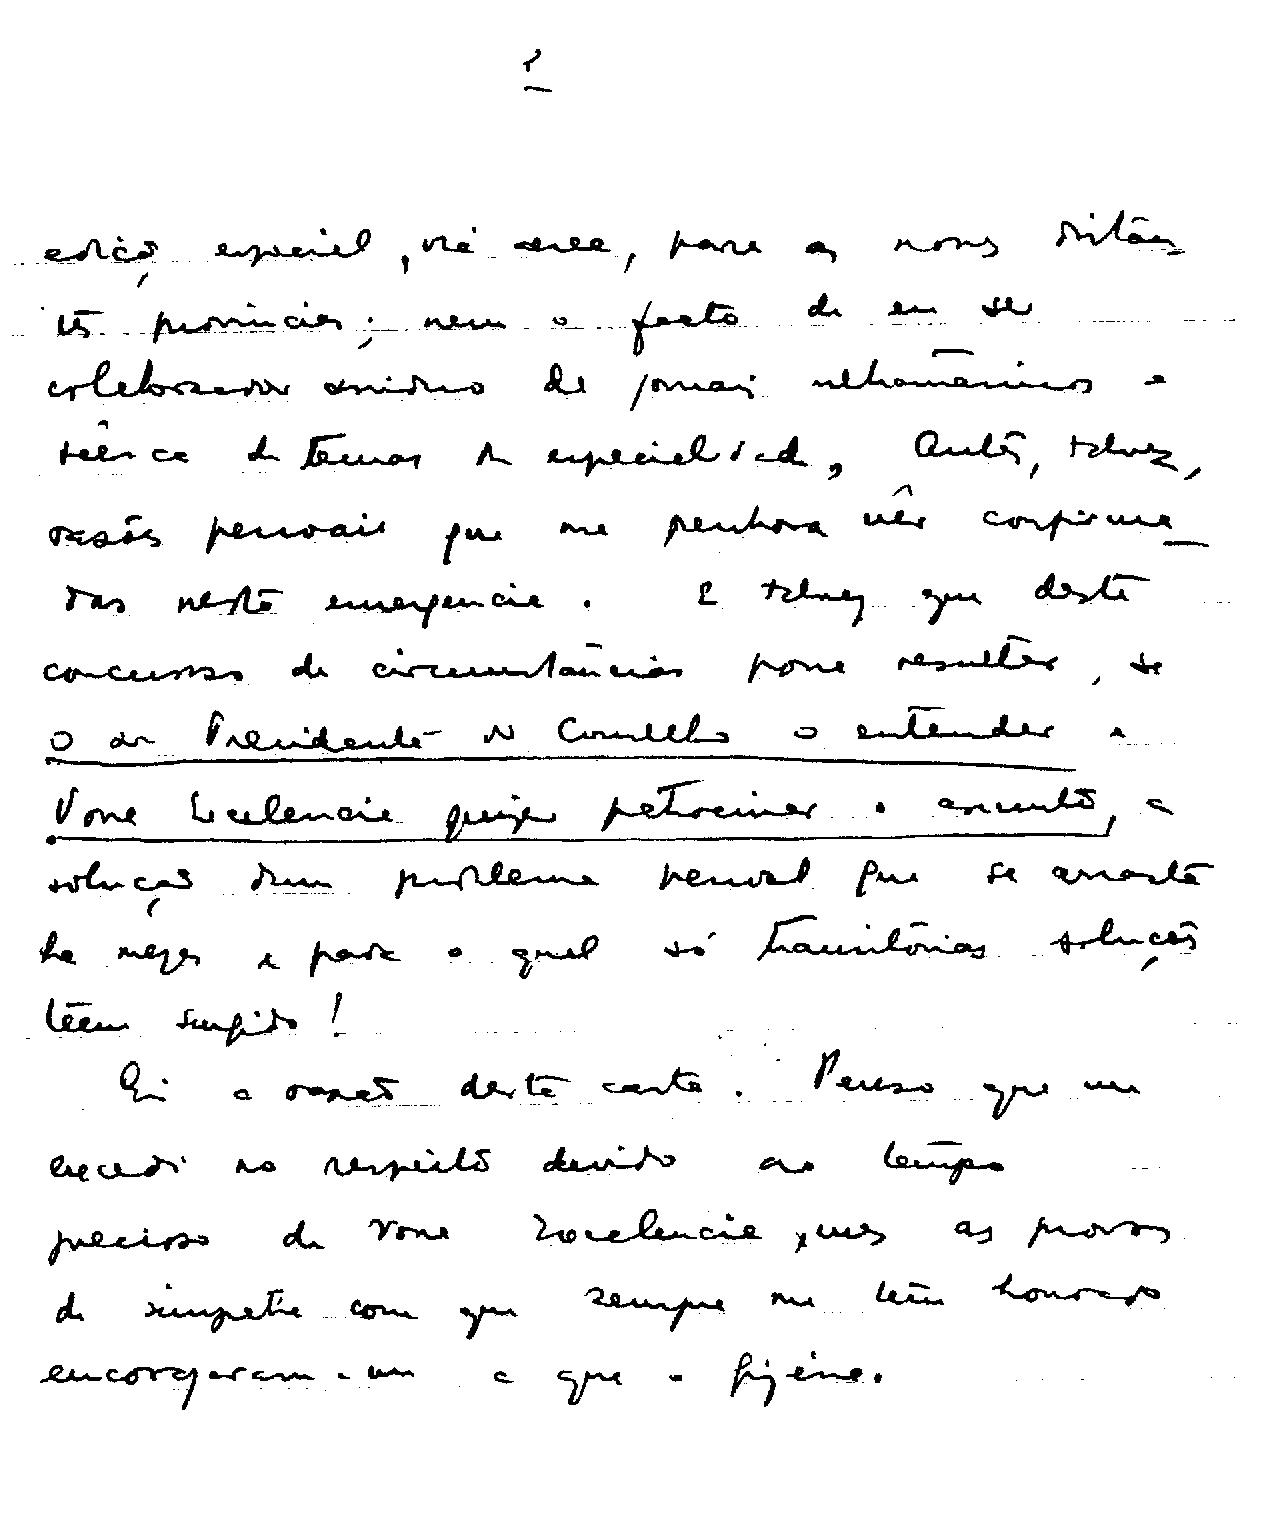 edição especial, via aerea, para as nossas distan
tes provincias; nem o facto de eu ser
colaborador assiduo de jornais ultramarinos e
de temas da especialidade, Antes, talvez,
razões pessoais que me penhora vêr confirma_
das nesta emergencia. E talvez que deste
concurso de circunstâncias possa resultar, se
o sr Presidente do Conselho o entender e
Vossa Excelencia quizer patrocinar o assunto, a
solução dum problema pessoal que se arrasta
ha mezes e para o qual só transitórias soluções
têem surgido!
Eis a razão desta carta. Penso que me
excedi no respeito devido ao tempo
precioso de Vossa Excelencia, mas as provas
de simpatia com que sempre me tem honrado
encorajaram-me a que o fizesse.